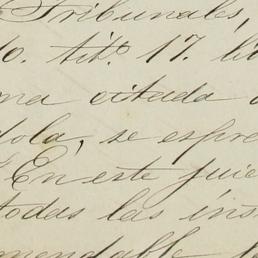 Tribunales,
tit.o 17. li
ma citada
dola, se espre
"En este jui
todas las ins
mendable